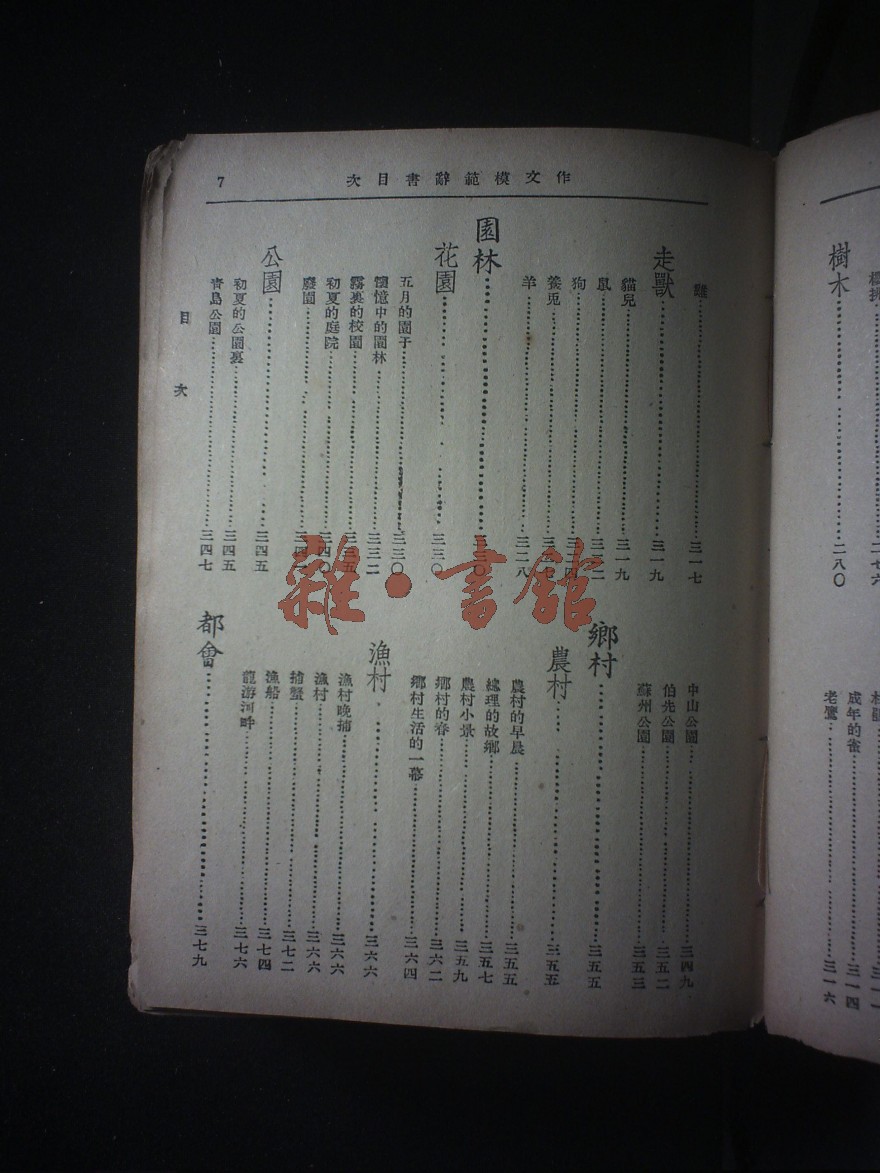 作文模範辭書目次 7
雞……三一七
走獸……三一九
貓兒……三一九
鼠……三二二
狗……三二四
養兎……三二七
羊……三二八
園林……三三〇
花園……三三〇
五月的園子……三三〇
憶中的園林……三三二
霧裏的校園……三三五
初夏的庭院……三四〇
廢園……三四
公園……三四五
初夏的公園裏……三四五
青島公園……三四七
中山公園……三四九
伯先公園……三五二
蘇州公園……三五三
鄉村……三五五
農村……三五五
農村的早晨……三五五
總理的故鄉……三五七
農村小景……三五九
鄉村的春……三六二
鄉村生活的一幕……三六四
漁村……三六六
漁村晚捕……三六六
漁村……三六六
捕蟹……三七二
漁船……三七四
龍游河畔……三七六
都會……三七九
目次
雜·書館
二七六
樹木……二八〇
成年的雀……三一四
老鷹……三一六